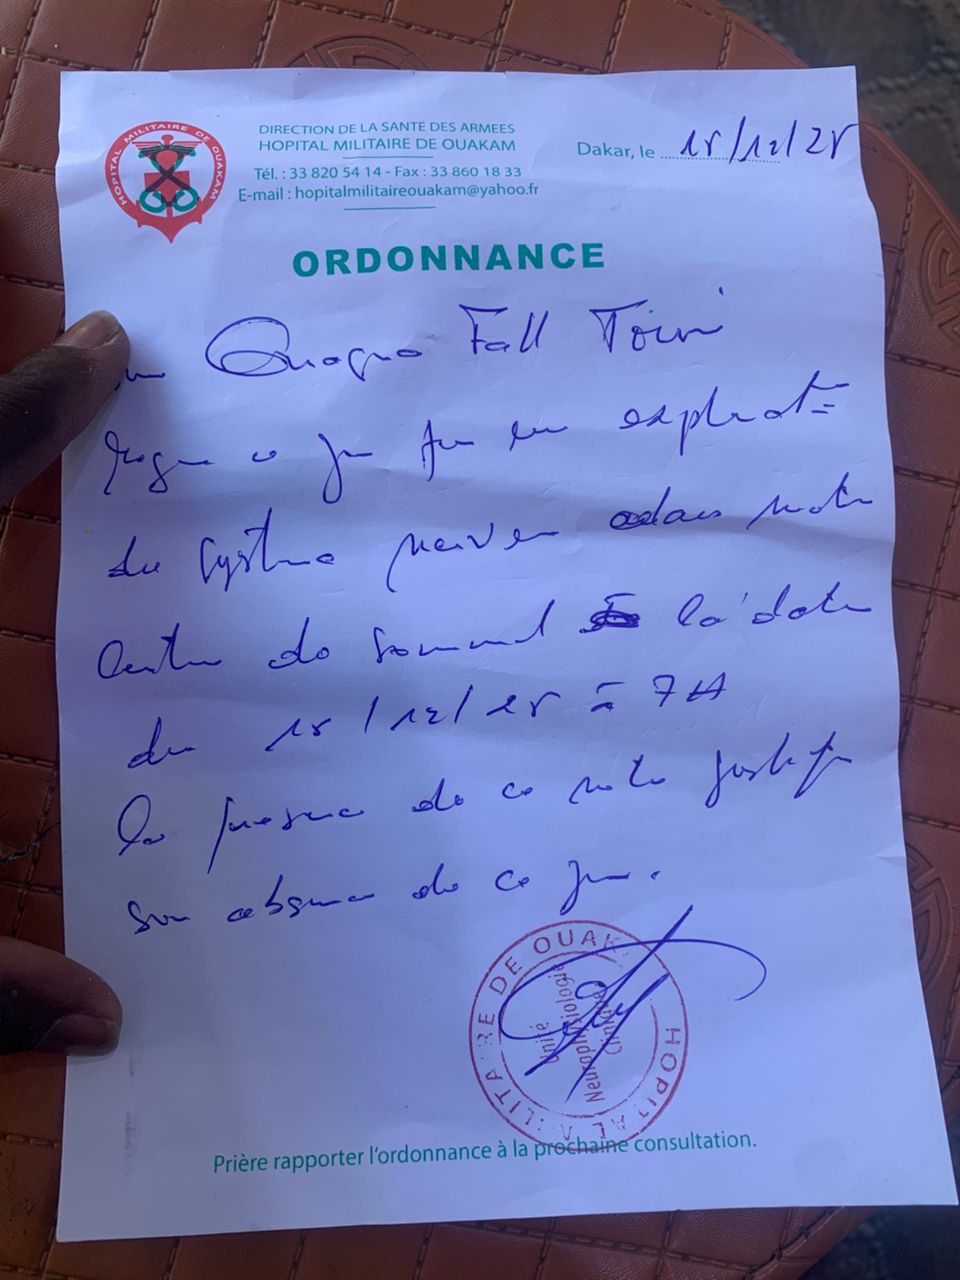 HOPITAL MILITAIRE DE OUAKAM
DIRECTION DE LA SANTE DES ARMEES
HOPITAL MILITAIRE DE OUAKAM
Tél. : 33 820 54 14 - Fax : 33 860 18 33
E-mail : hopitalmilitaireouakam@yahoo.fr
Dakar, le 15/12/25
ORDONNANCE
Fall
ce jour pour une explorat°
du système nerveux dans notre
centre de sommeil la date
du 15/12/25 à 7H
la présence de ce note justifie
son absence de ce jour.
HOPITAL MILITAIRE DE OUAKAM
Unité
Neurophysiologie
Clinique
Prière rapporter l'ordonnance à la prochaine consultation.